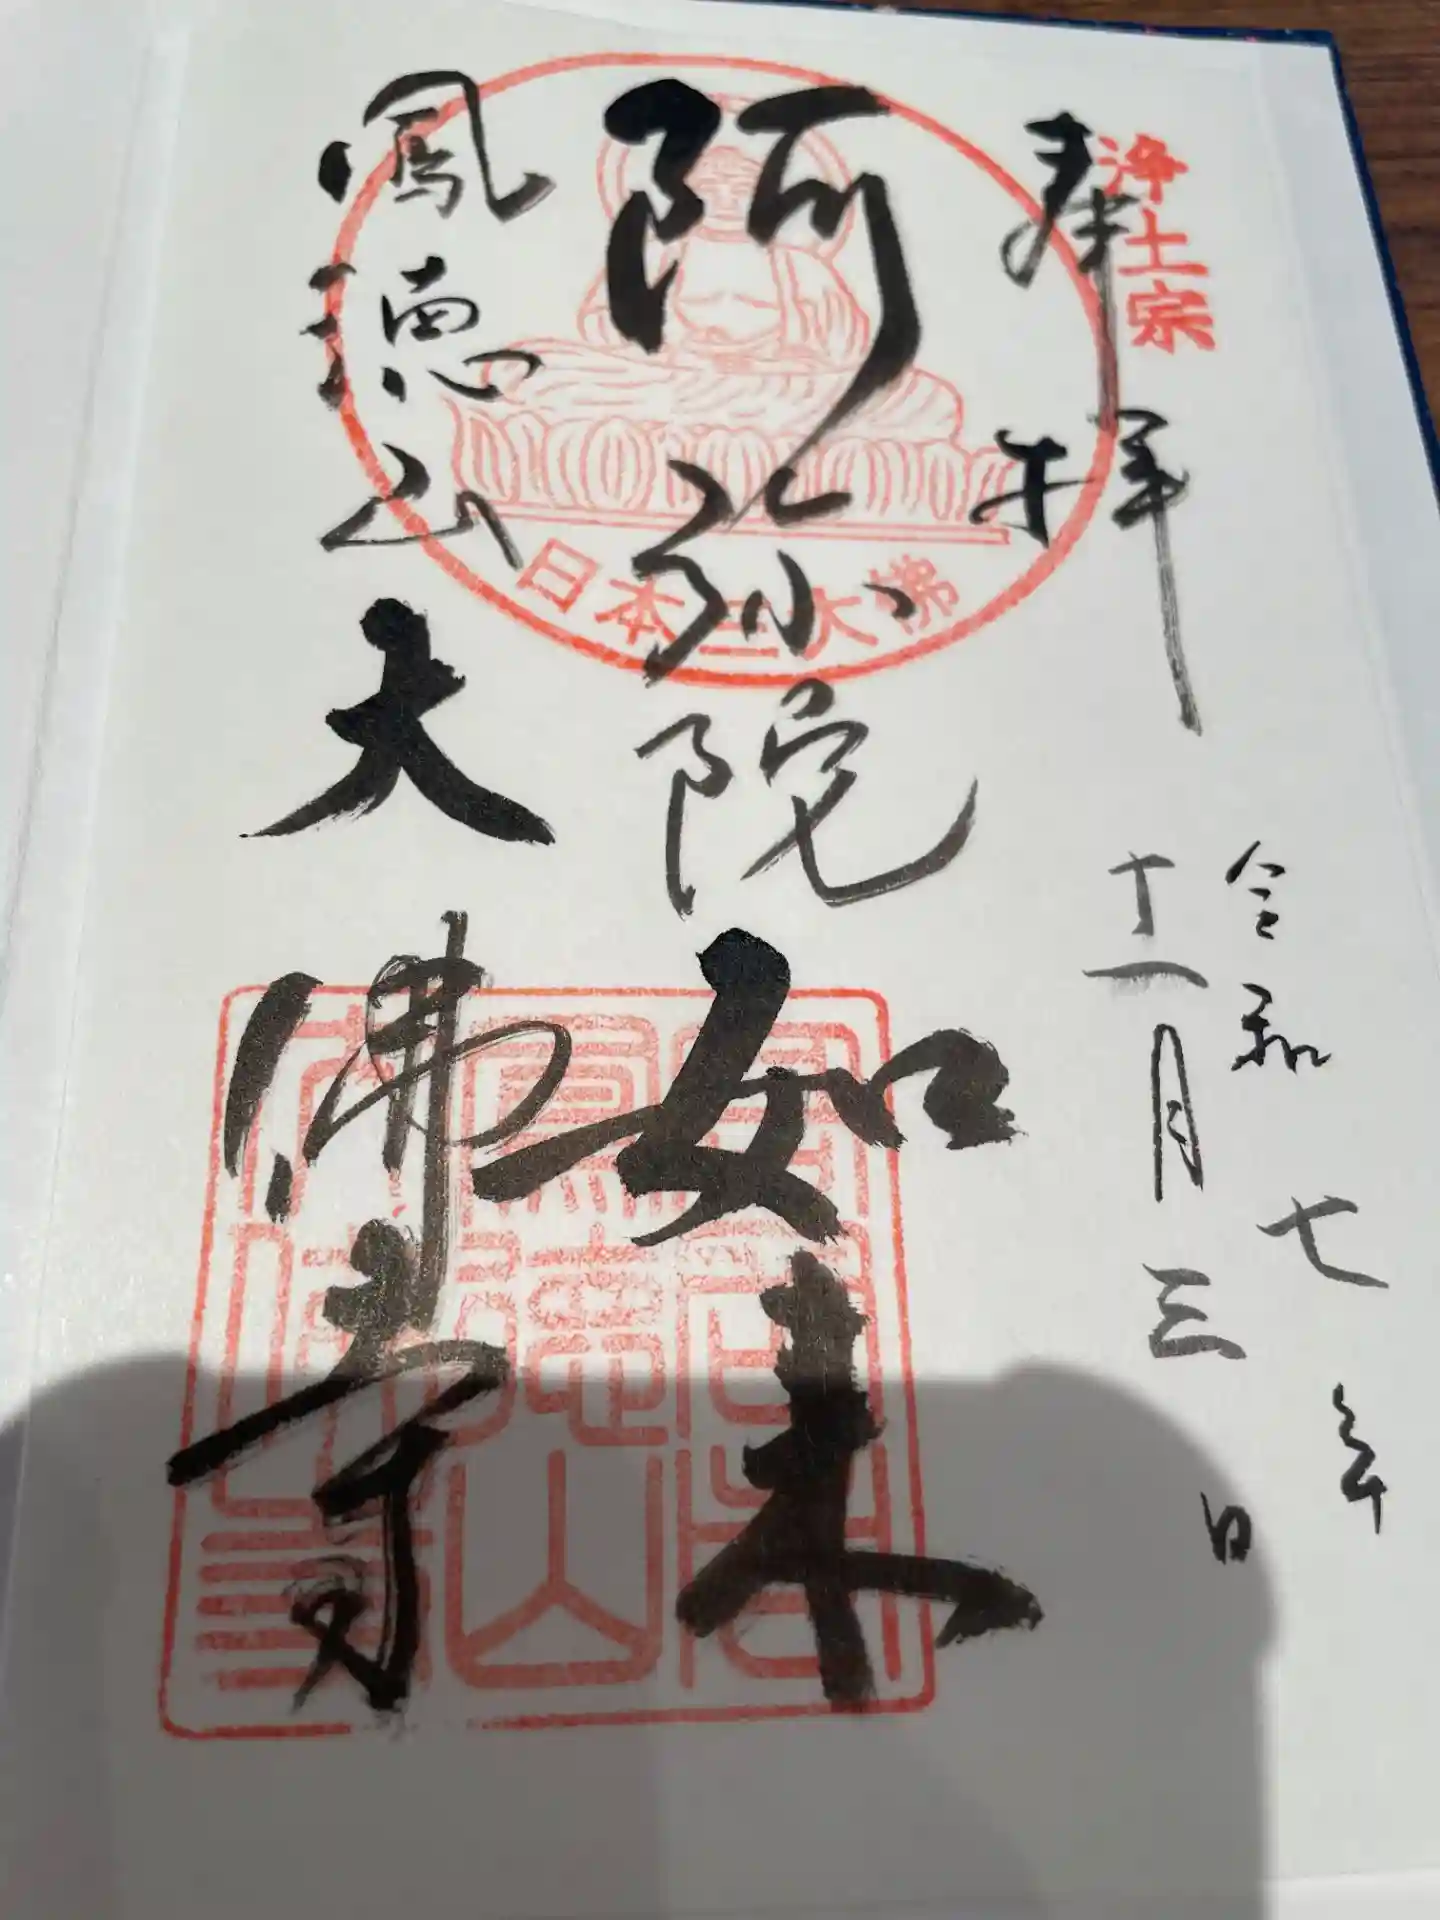 浄土宗
奉拝
令和七年
十一月三日
阿弥陀如来
鳳徳山大佛寺
日本三大佛